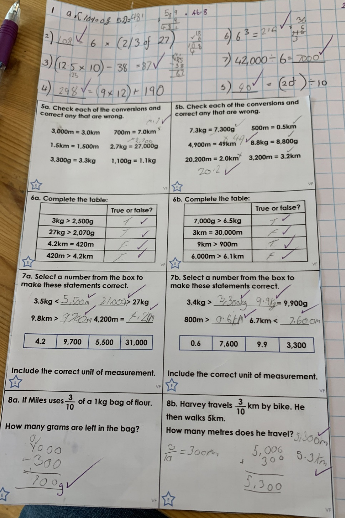 2) 108 6 × (2/3 of 27) 6) 6³ = 216
3) (12.5 × 10) - 38 = 87 7) 42,000 ÷ 6 = 7000
4) 298 = (9 × 12) + 190 5) 40 = (20²) ÷ 10
5a. Check each of the conversions and
correct any that are wrong.
3,000m = 3.0km 700m = 7.0km
1.5km = 1,500m 2.7kg = 27,000g
3,300g = 3.3kg 1,100g = 1.1kg
5b. Check each of the conversions and
correct any that are wrong.
7.3kg = 7,300g 500m = 0.5km
4,900m = 49km 8.8kg = 8,800g
20,200m = 2.0km 3,200m = 3.2km
20.2
6a. Complete the table:
True or false?
3kg > 2,500g T
27kg > 2,070g T
4.2km = 420m F
420m > 4.2km F
6b. Complete the table:
True or false?
7,000g > 6.5kg T
3km = 30,000m F
9km > 900m T
6,000m > 6.1km F
7a. Select a number from the box to
make these statements correct.
3.5kg < 5,500g > 27kg
9.8km > 9,700m 4,200m = 4.2km
4.2 9,700 5,500 31,000
Include the correct unit of measurement.
7b. Select a number from the box to
make these statements correct.
3.4kg > 3,300g 9.9kg = 9,900g
800m > 0.6km 6.7km < 7,600m
0.6 7,600 9.9 3,300
Include the correct unit of measurement.
8a. If Miles uses 3/10 of a 1kg bag of flour.
How many grams are left in the bag?
- 300
700g
8b. Harvey travels 3/10 km by bike. He
then walks 5km.
How many metres does he travel? 5,300m
3/10 = 300m 5,000 5.3km
+ 300
5,300